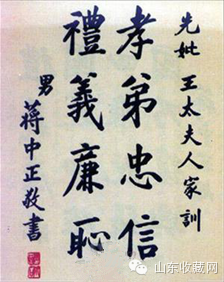 先妣王太夫人家訓
孝弟忠信
禮義廉恥
男
蔣中正敬書
山东收藏网